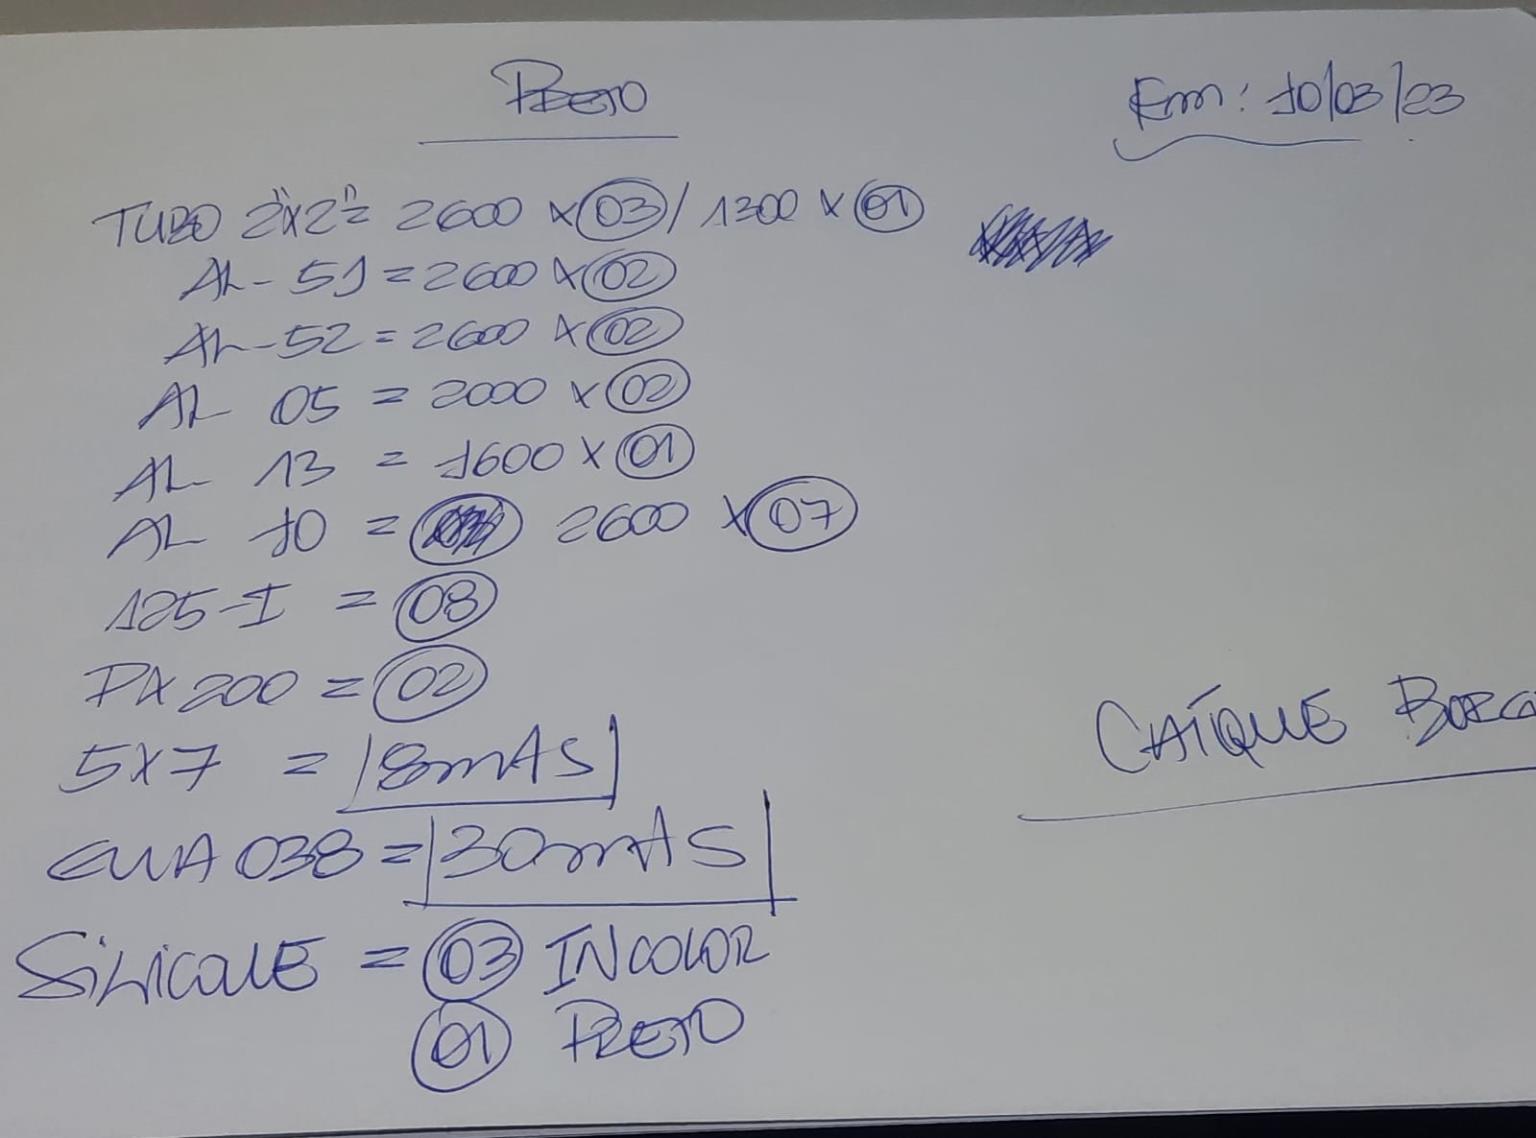 PRETO
Em: 10/03/23
TUBO 2"x2" = 2600 x 03 / 1300 x 01
AL-51 = 2600 x 02
AL-52 = 2600 x 02
AL 05 = 2000 x 02
AL 13 = 1600 x 01
AL 10 = 2600 x 07
125-I = 08
PX 200 = 02
5x7 = 18mts
CAÍQUE BORG
GUA 038 = 30mts
SILICONE = 03 INCOLOR
01 PRETO